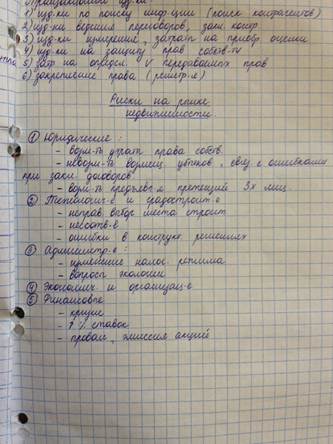 1) изд-ки по поиску инф-ции (поиск контрагентов)
2) изд-ки ведения переговоров, закл. контр.
3) изд-ки измерения, затрат на приобр. оценки
4) изд-ки на защиту прав собств-ти
5) затр на определ. и передаваемых прав
6) закрепление права (регистр-я)
Риски на рынке
недвижимости.
① Юридические:
- возм-ть утрат права собств.
- невозм-ть возмещ. убытков, связ с ошибками
при закл договоров
- возм-ть предъявл-я претензий 3х лиц
② Технологич-е и градостроит-е
- неправ выбор места строит
- несоотв-е
- ошибки в конструк. решениях
③ Администр-е:
- изменение налог. режима
- вопросы экологии
④ Экономич и организац-е
⑤ Финансовые
- кризис
- % ставок
- провал, эмиссия акций